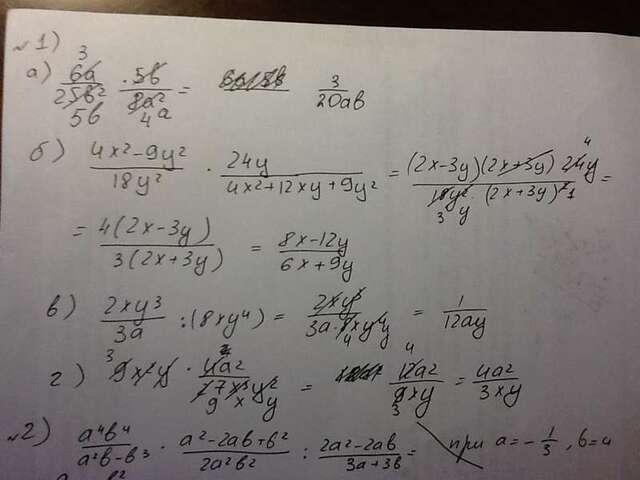 №1)
а) 6a/25b² · 5b/8a² = 3/20ab
б) (4x²-9y²)/18y² · 24y/(4x²+12xy+9y²) = (2x-3y)(2x+3y) 24y/18y² · (2x+3y)² =
= 4(2x-3y)/3(2x+3y) = (8x-12y)/(6x+9y)
в) 2xy³/3a : (8xy⁴) = 2xy³/3a·8xy⁴ = 1/12ay
г) 9x²y · 4a²/27x³y² = 12a²/9xy = 4a²/3xy
№2) a⁴b⁴/(a²b-b³) · (a²-2ab+b²)/2a²b² : (2a²-2ab)/(3a+3b) = при a=-1/3, b=4